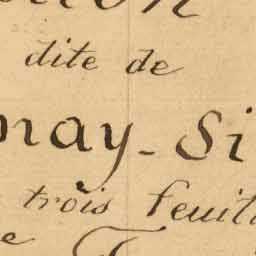 dite de
nay-Si
trois feuill
e